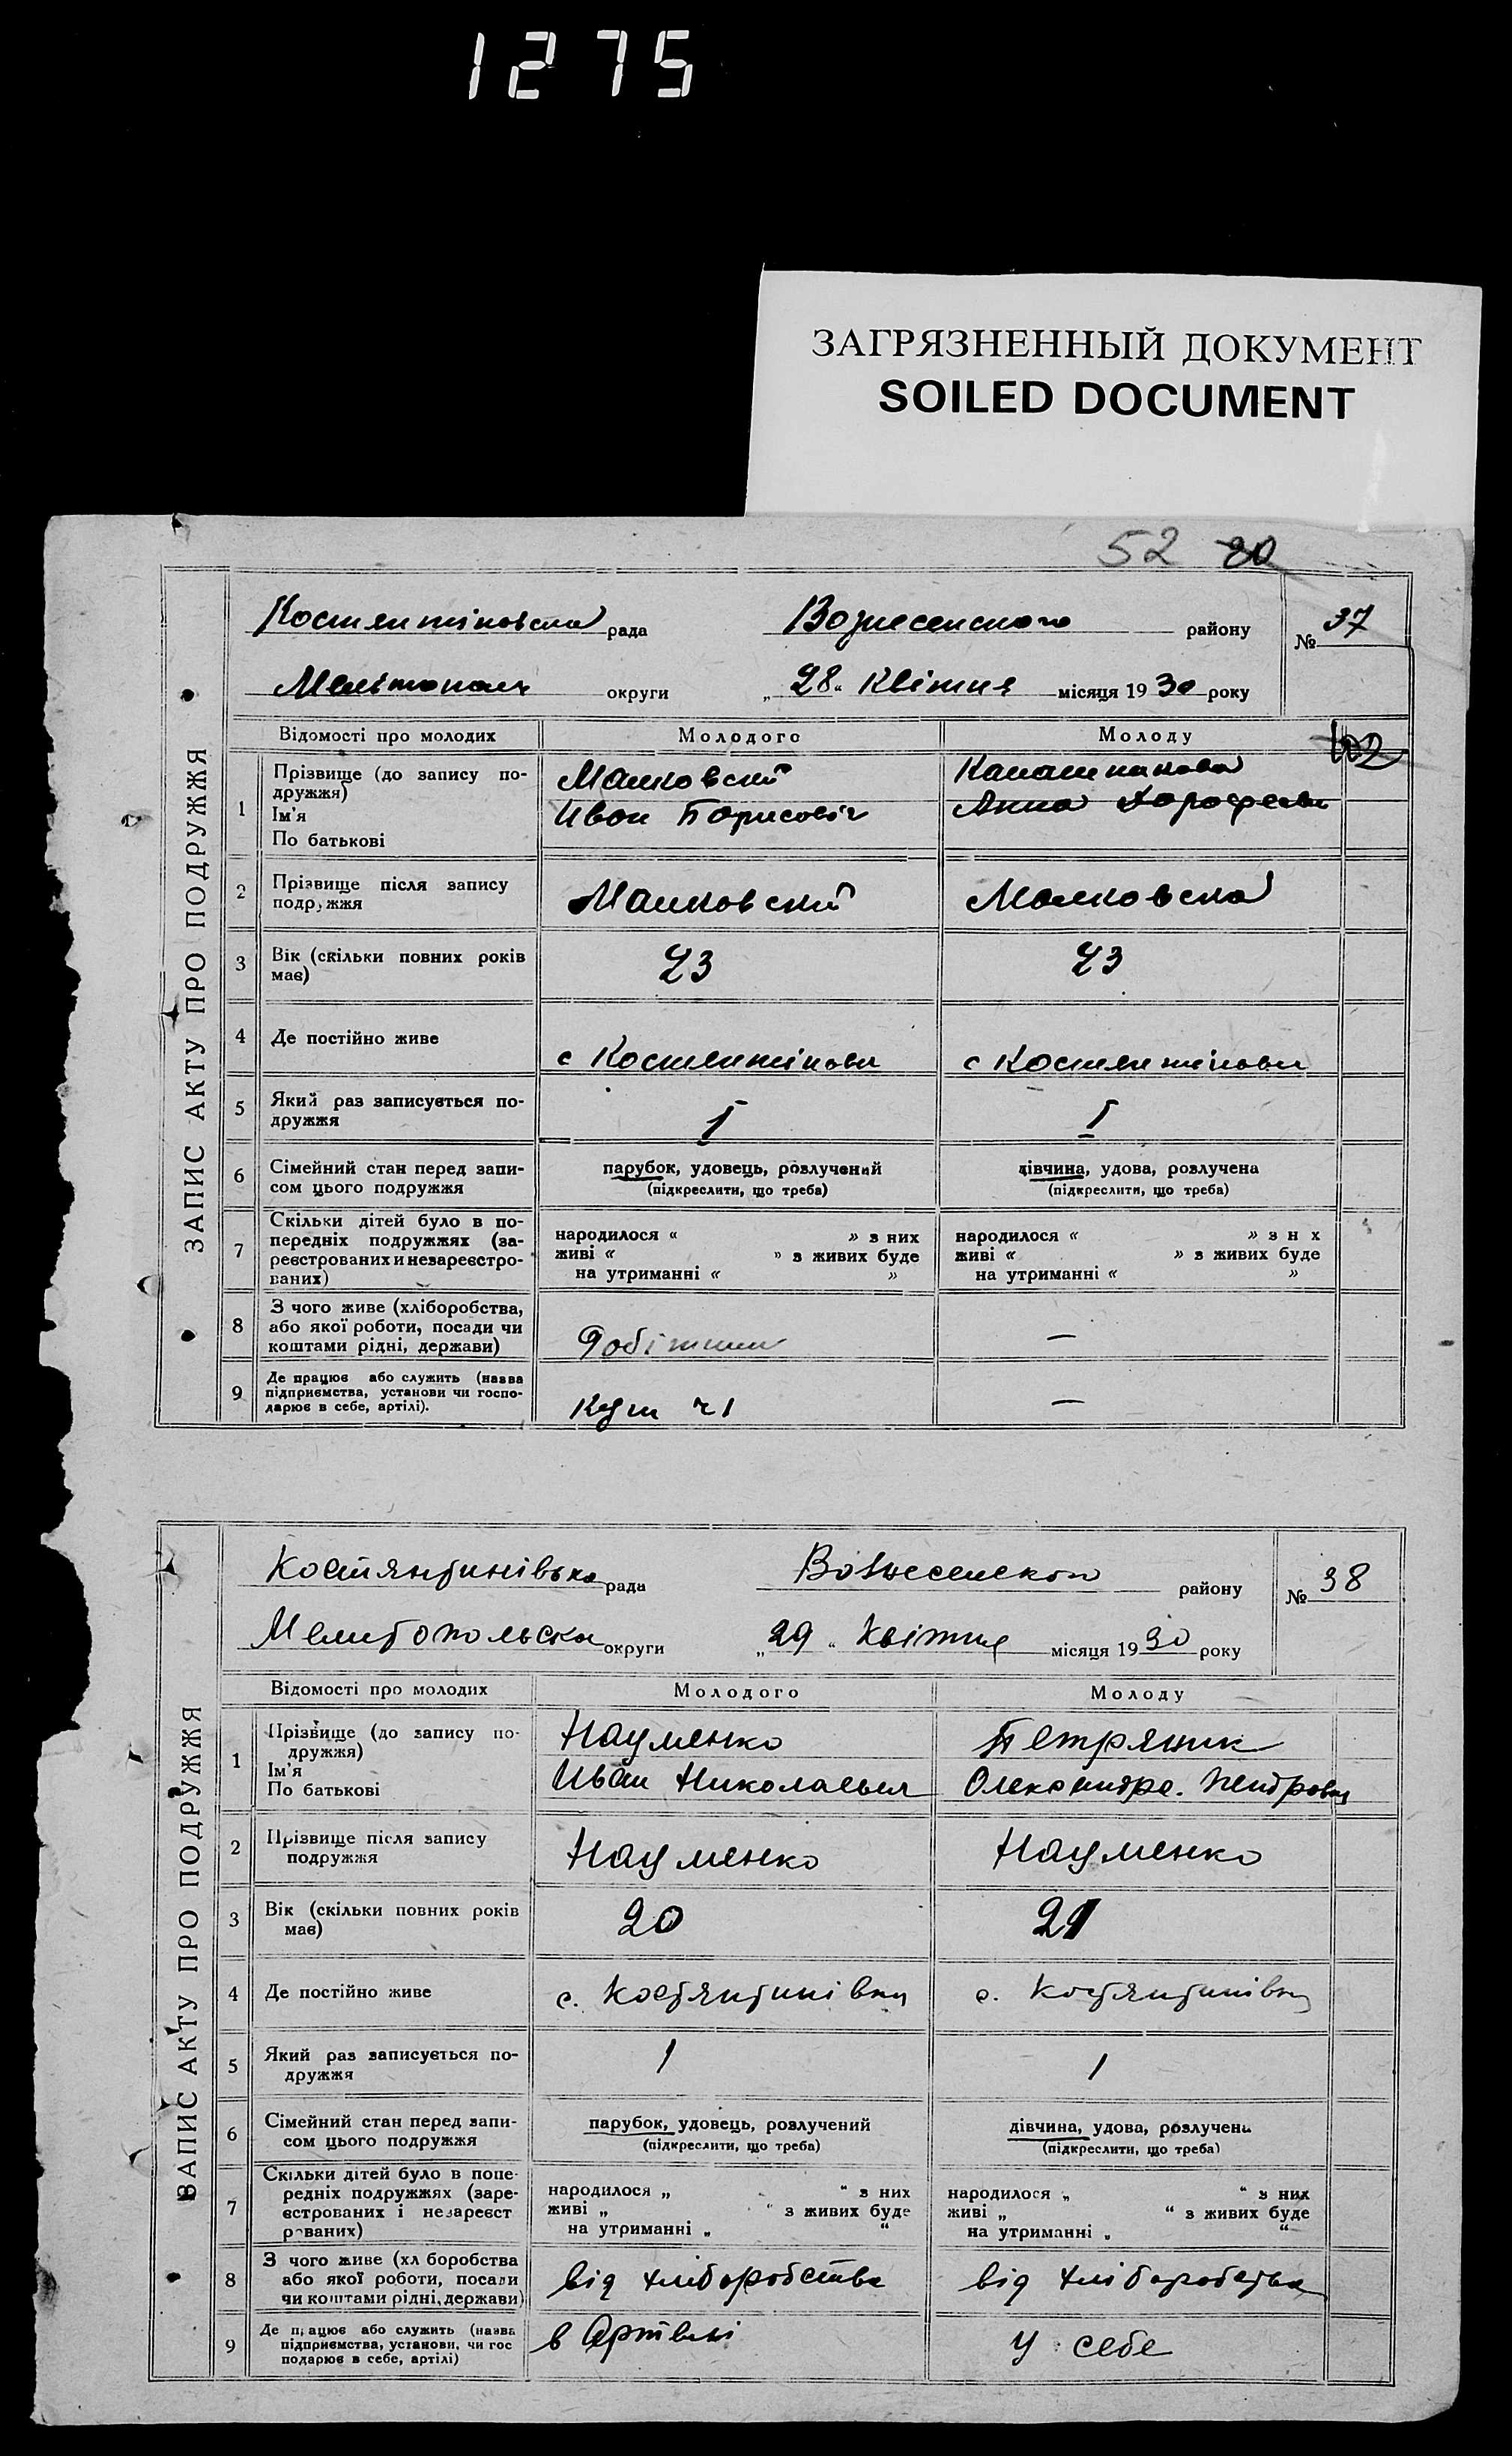 1275
ЗАГРЯЗНЕННЫЙ ДОКУМЕНТ
SOILED DOCUMENT
52 20
ЗАПИС АКТУ ПРО ПОДРУЖЖЯ
Костентіновска рада Вознесенского району № 37
Мелітополь округи „28“ Квітня місяця 1930 року
Відомості про молодих Молодого Молоду 102
1 Прізвище (до запису по-
дружжя)
Ім'я
По батькові
Машковский
Иван Борисовіч
Калашникова
Анна
2 Прізвище після запису
подружжя
Машковский Машковска
3 Вік (скільки повних років
має)
23 23
4 Де постійно живе
с Костентіновки с Костентіновки
5 Який раз записується по-
дружжя
I I
6 Сімейний стан перед запи-
сом цього подружжя
парубок, удовець, розлучений
(підкреслити, що треба)
дівчина, удова, розлучена
(підкреслити, що треба)
7 Скільки дітей було в по-
передніх подружжях (за-
реєстрованих и незареєстро-
ваних)
народилося « » з них
живі « » з живих буде
на утриманні « »
народилося « » з н х
живі « » з живих буде
на утриманні « »
8 З чого живе (хліборобства,
або якої роботи, посади чи
коштами рідні, держави)
Робітник —
9 Де працює або служить (назва
підприємства, установи чи госпо-
дарює в себе, артілі).
Кущ ч1 —
ЗАПИС АКТУ ПРО ПОДРУЖЖЯ
Костянтинівька рада Вознесенского району № 38
Мелитопольска округи „29“ Квітня місяця 1930 року
Відомості про молодих Молодого Молоду
1 Прізвище (до запису по-
дружжя)
Ім'я
По батькові
Науменко
Иван Николаевич
Петряник
Олександра. Петровна
2 Прізвище після запису
подружжя
Науменко Науменко
3 Вік (скільки повних років
має)
20 21
4 Де постійно живе
с. Костянтинівки с. Костянтинівки
5 Який раз записується по-
дружжя
1 1
6 Сімейний стан перед запи-
сом цього подружжя
парубок, удовець, розлучений
(підкреслити, що треба)
дівчина, удова, розлучена
(підкреслити, що треба)
7 Скільки дітей було в попе-
редніх подружжях (заре-
єстрованих і незареєст
рованих)
народилося „ “ з них
живі „ “ з живих буде
на утриманні „ “
народилося „ “ з них
живі „ “ з живих буде
на утриманні „ “
8 З чого живе (хл боробства
або якої роботи, посади
чи коштами рідні, держави)
від хліборобства від хліборобства
9 Де працює або служить (назва
підприємства, установи, чи гос
подарює в себе, артілі)
в Артілі у себе